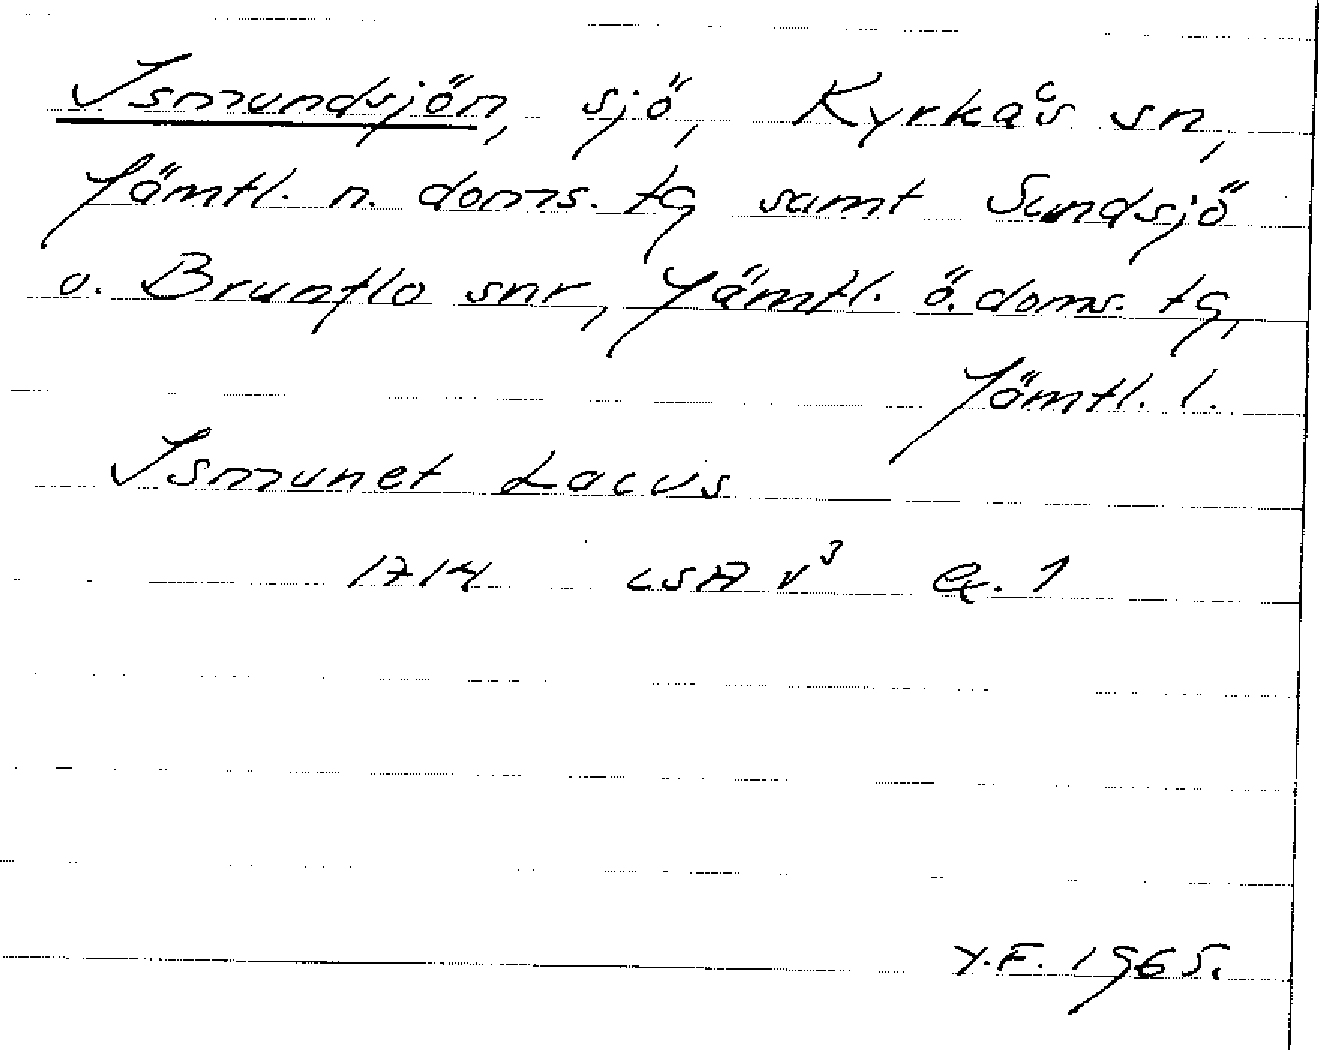 Ismundsjön, sjö, Kyrkås sn,
Jämtl. n. doms. tg samt Sundsjö
o. Brunflo snr, Jämtl. ö. doms. tg,
Jämtl. l.
Ismunet Lacus
1714 LSA V³ ex. 1
Y.F. 1965.